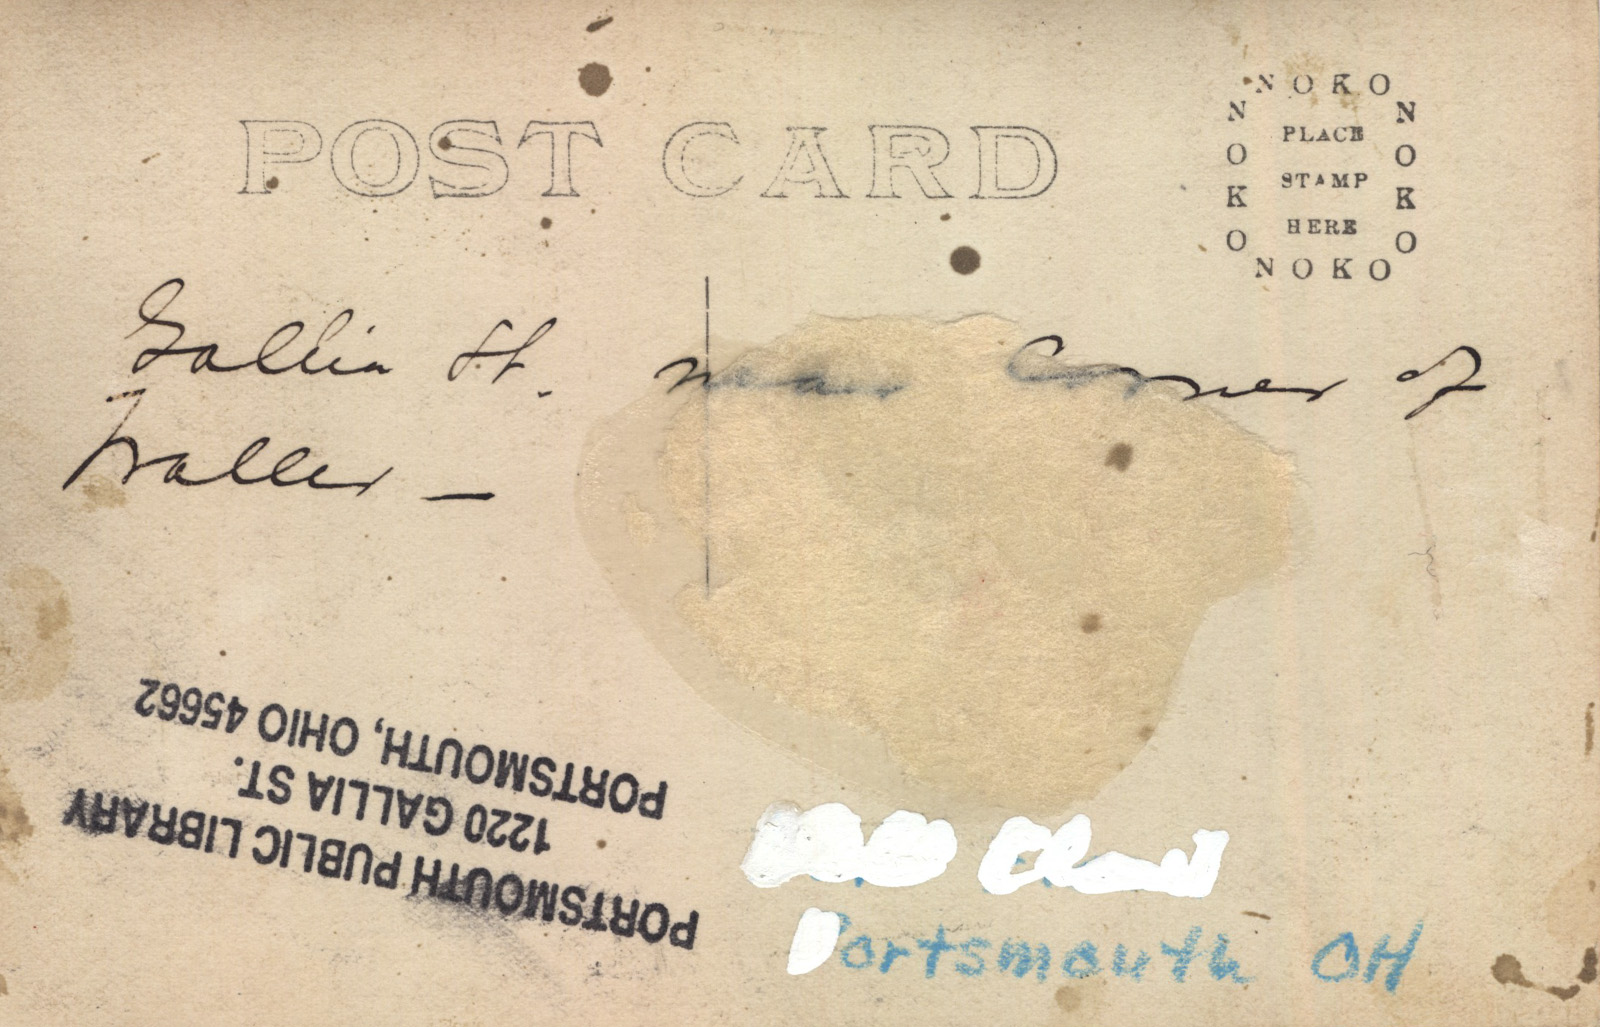 POST CARD
NOKO
NOKO
NOKO
NOKO
PLACE
STAMP
HERE
Gallia St. near Corner of
Waller —
PORTSMOUTH PUBLIC LIBRARY
1220 GALLIA ST.
PORTSMOUTH, OHIO 45662
Portsmouth OH